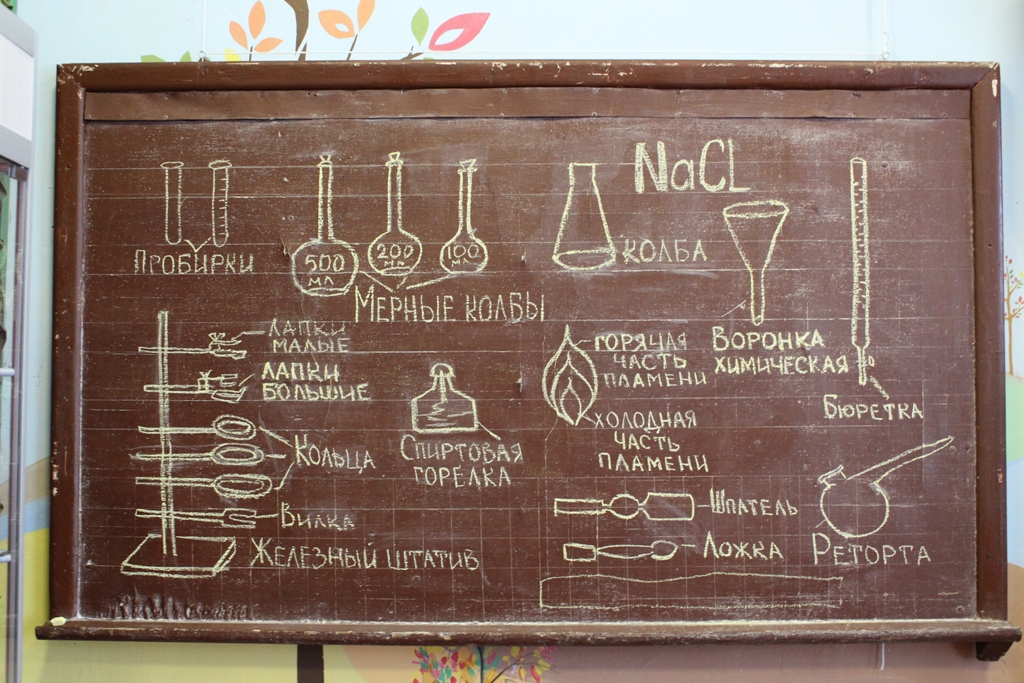 NaCL
Пробирки
500
мл
200
мл
100
мл
Мерные колбы
колба
Воронка
химическая
Бюретка
лапки
малые
лапки
большие
Кольца
Вилка
Железный штатив
Спиртовая
горелка
горячая
часть
пламени
холодная
часть
пламени
Шпатель
Ложка
Реторта